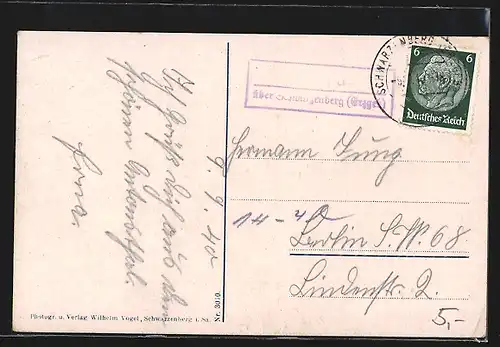 9. 9. 40
Ich grüße Euch aus dem
schönen Antonsthal.
Erna.
Photogr. u. Verlag Wilhelm Vogel, Schwarzenberg i. Sa.
Nr. 3010.
über Schwarzenberg (Erzgeb)
SCHWARZENBERG
6 6
Deutsches Reich
Hermann Jung
14-40
Berlin S.W. 68
Lindenstr. 2.
5,-